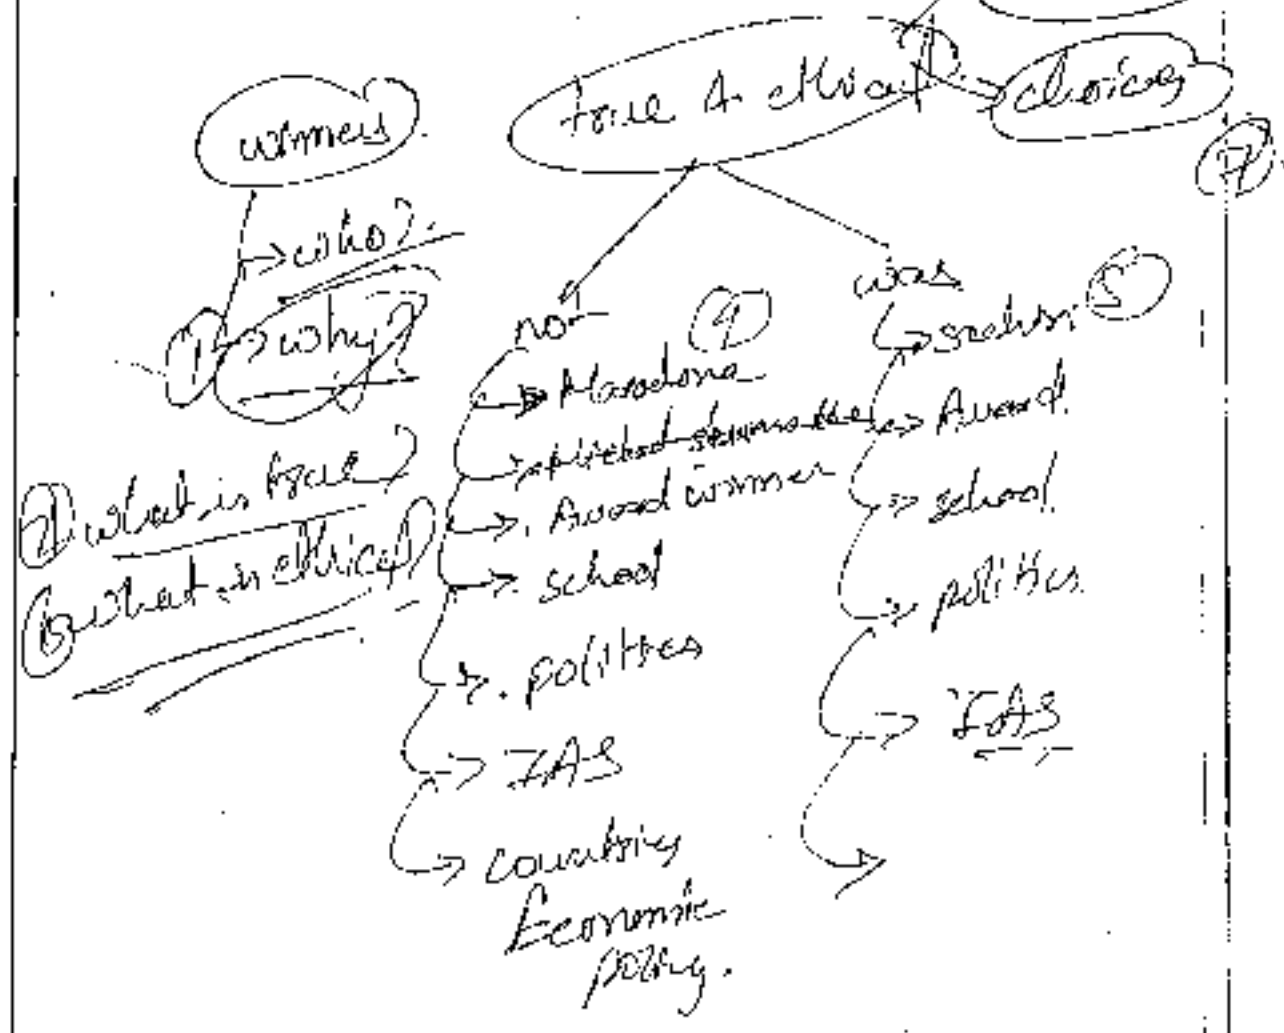 winners
true & ethical
choices
7
who?
1 why?
2 what is true?
3 what is ethical?
not
4
Maradona
Award winner
school
politics
IAS
countries
Economic
policy.
was
5
Award
school
politics
IAS